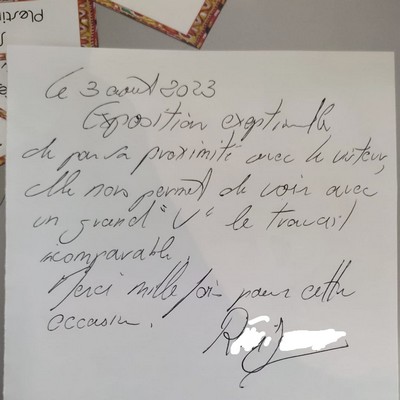 Plestin
Le 3 août 2023
Exposition exeptionnelle
de par sa proximité avec le visiteur,
elle nous permet de voir avec
un grand "V" le travail
incomparable.
Merci mille fois pour cette
occasion.